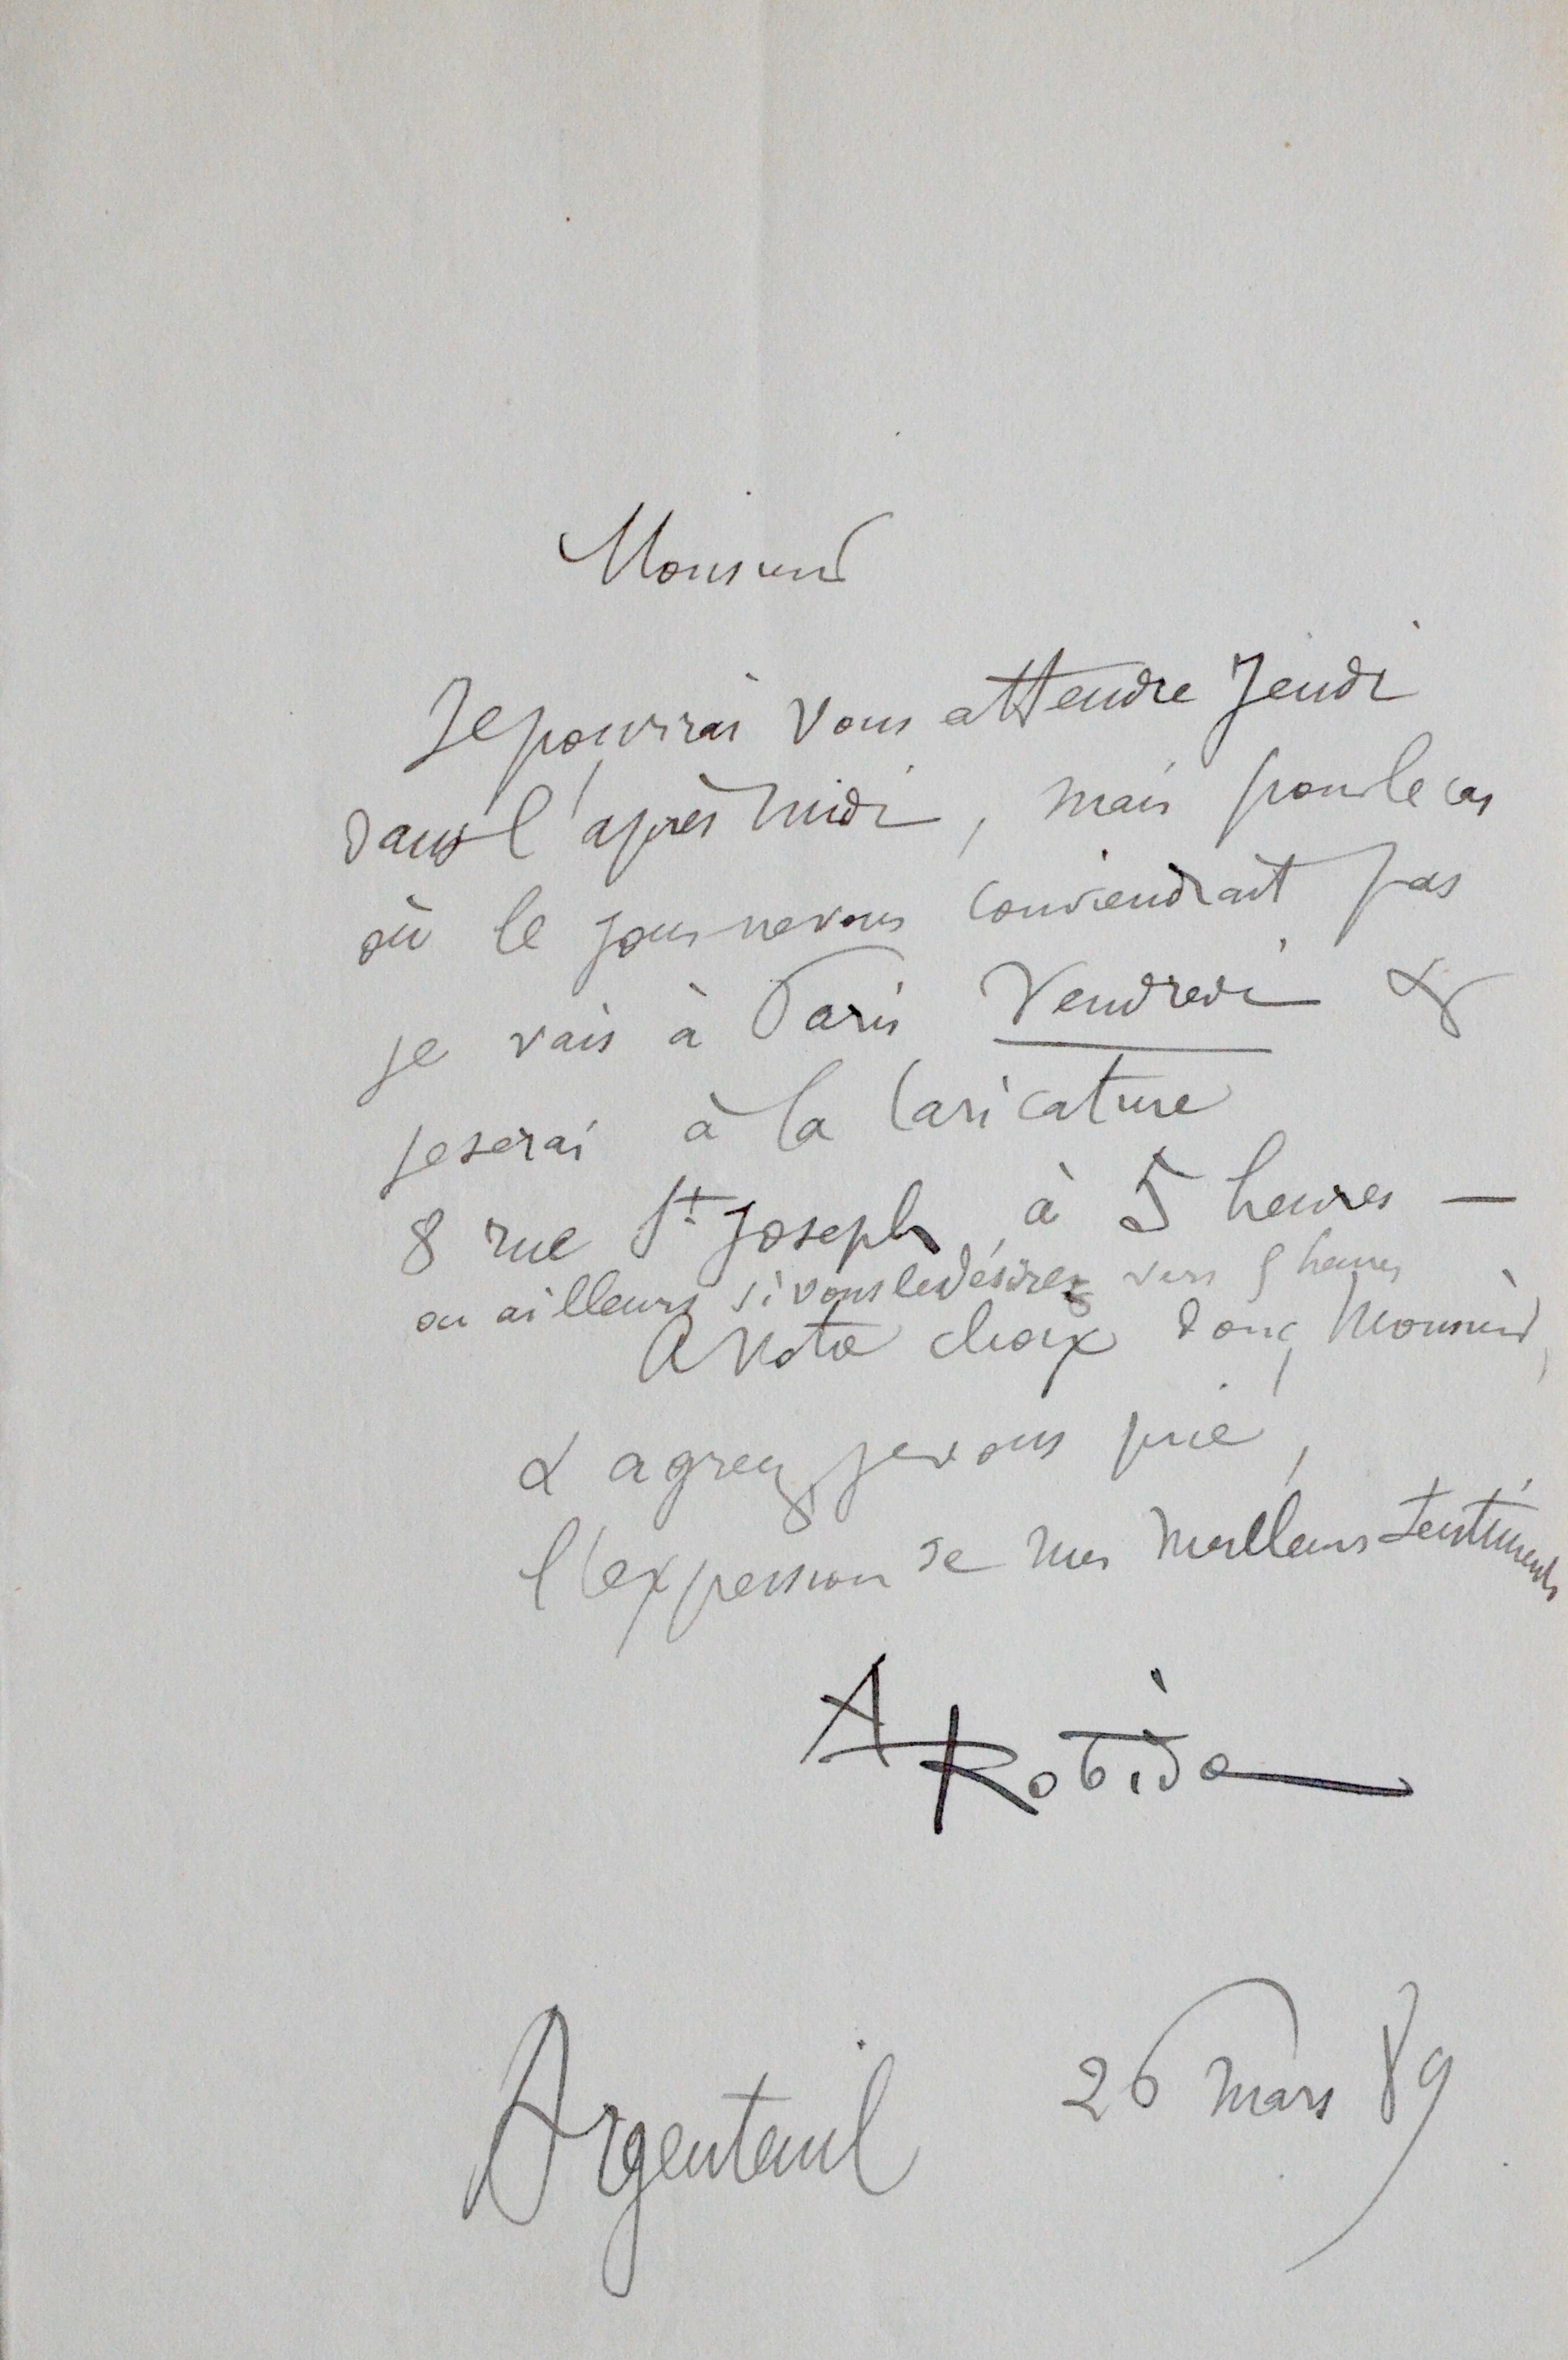 Monsieur
Je pourrai vous attendre Jeudi
dans l'après midi, mais pour le cas
où le jour ne vous conviendrait pas
je vais à Paris Vendredi &
je serai à la Caricature
8 rue St. Joseph, à 5 heures —
ou ailleurs si vous le désirez vers 5 heures
A votre choix donc, Monsieur,
& agréez, je vous prie,
l'expression de mes meilleurs sentiments
A Robida
Argenteuil 26 mars 89